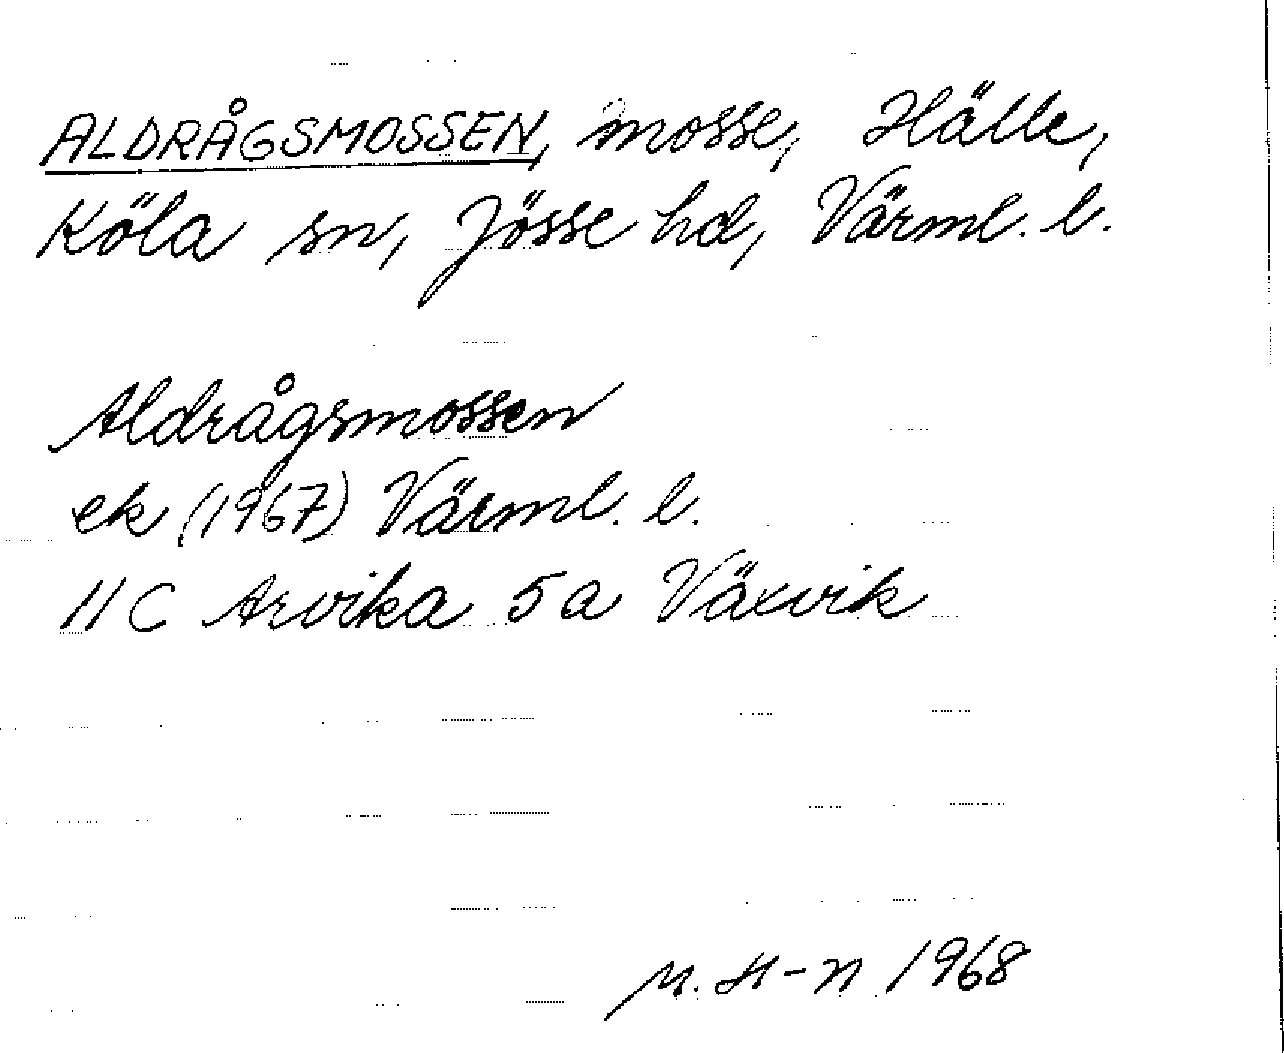 ALDRÅGSMOSSEN, mosse, Hälle,
Köla sn, Jösse hd, Värml. l.
Aldrågsmossen
ek (1967) Värml. l.
11 C Arvika 5 a Växvik
M. H-n 1968